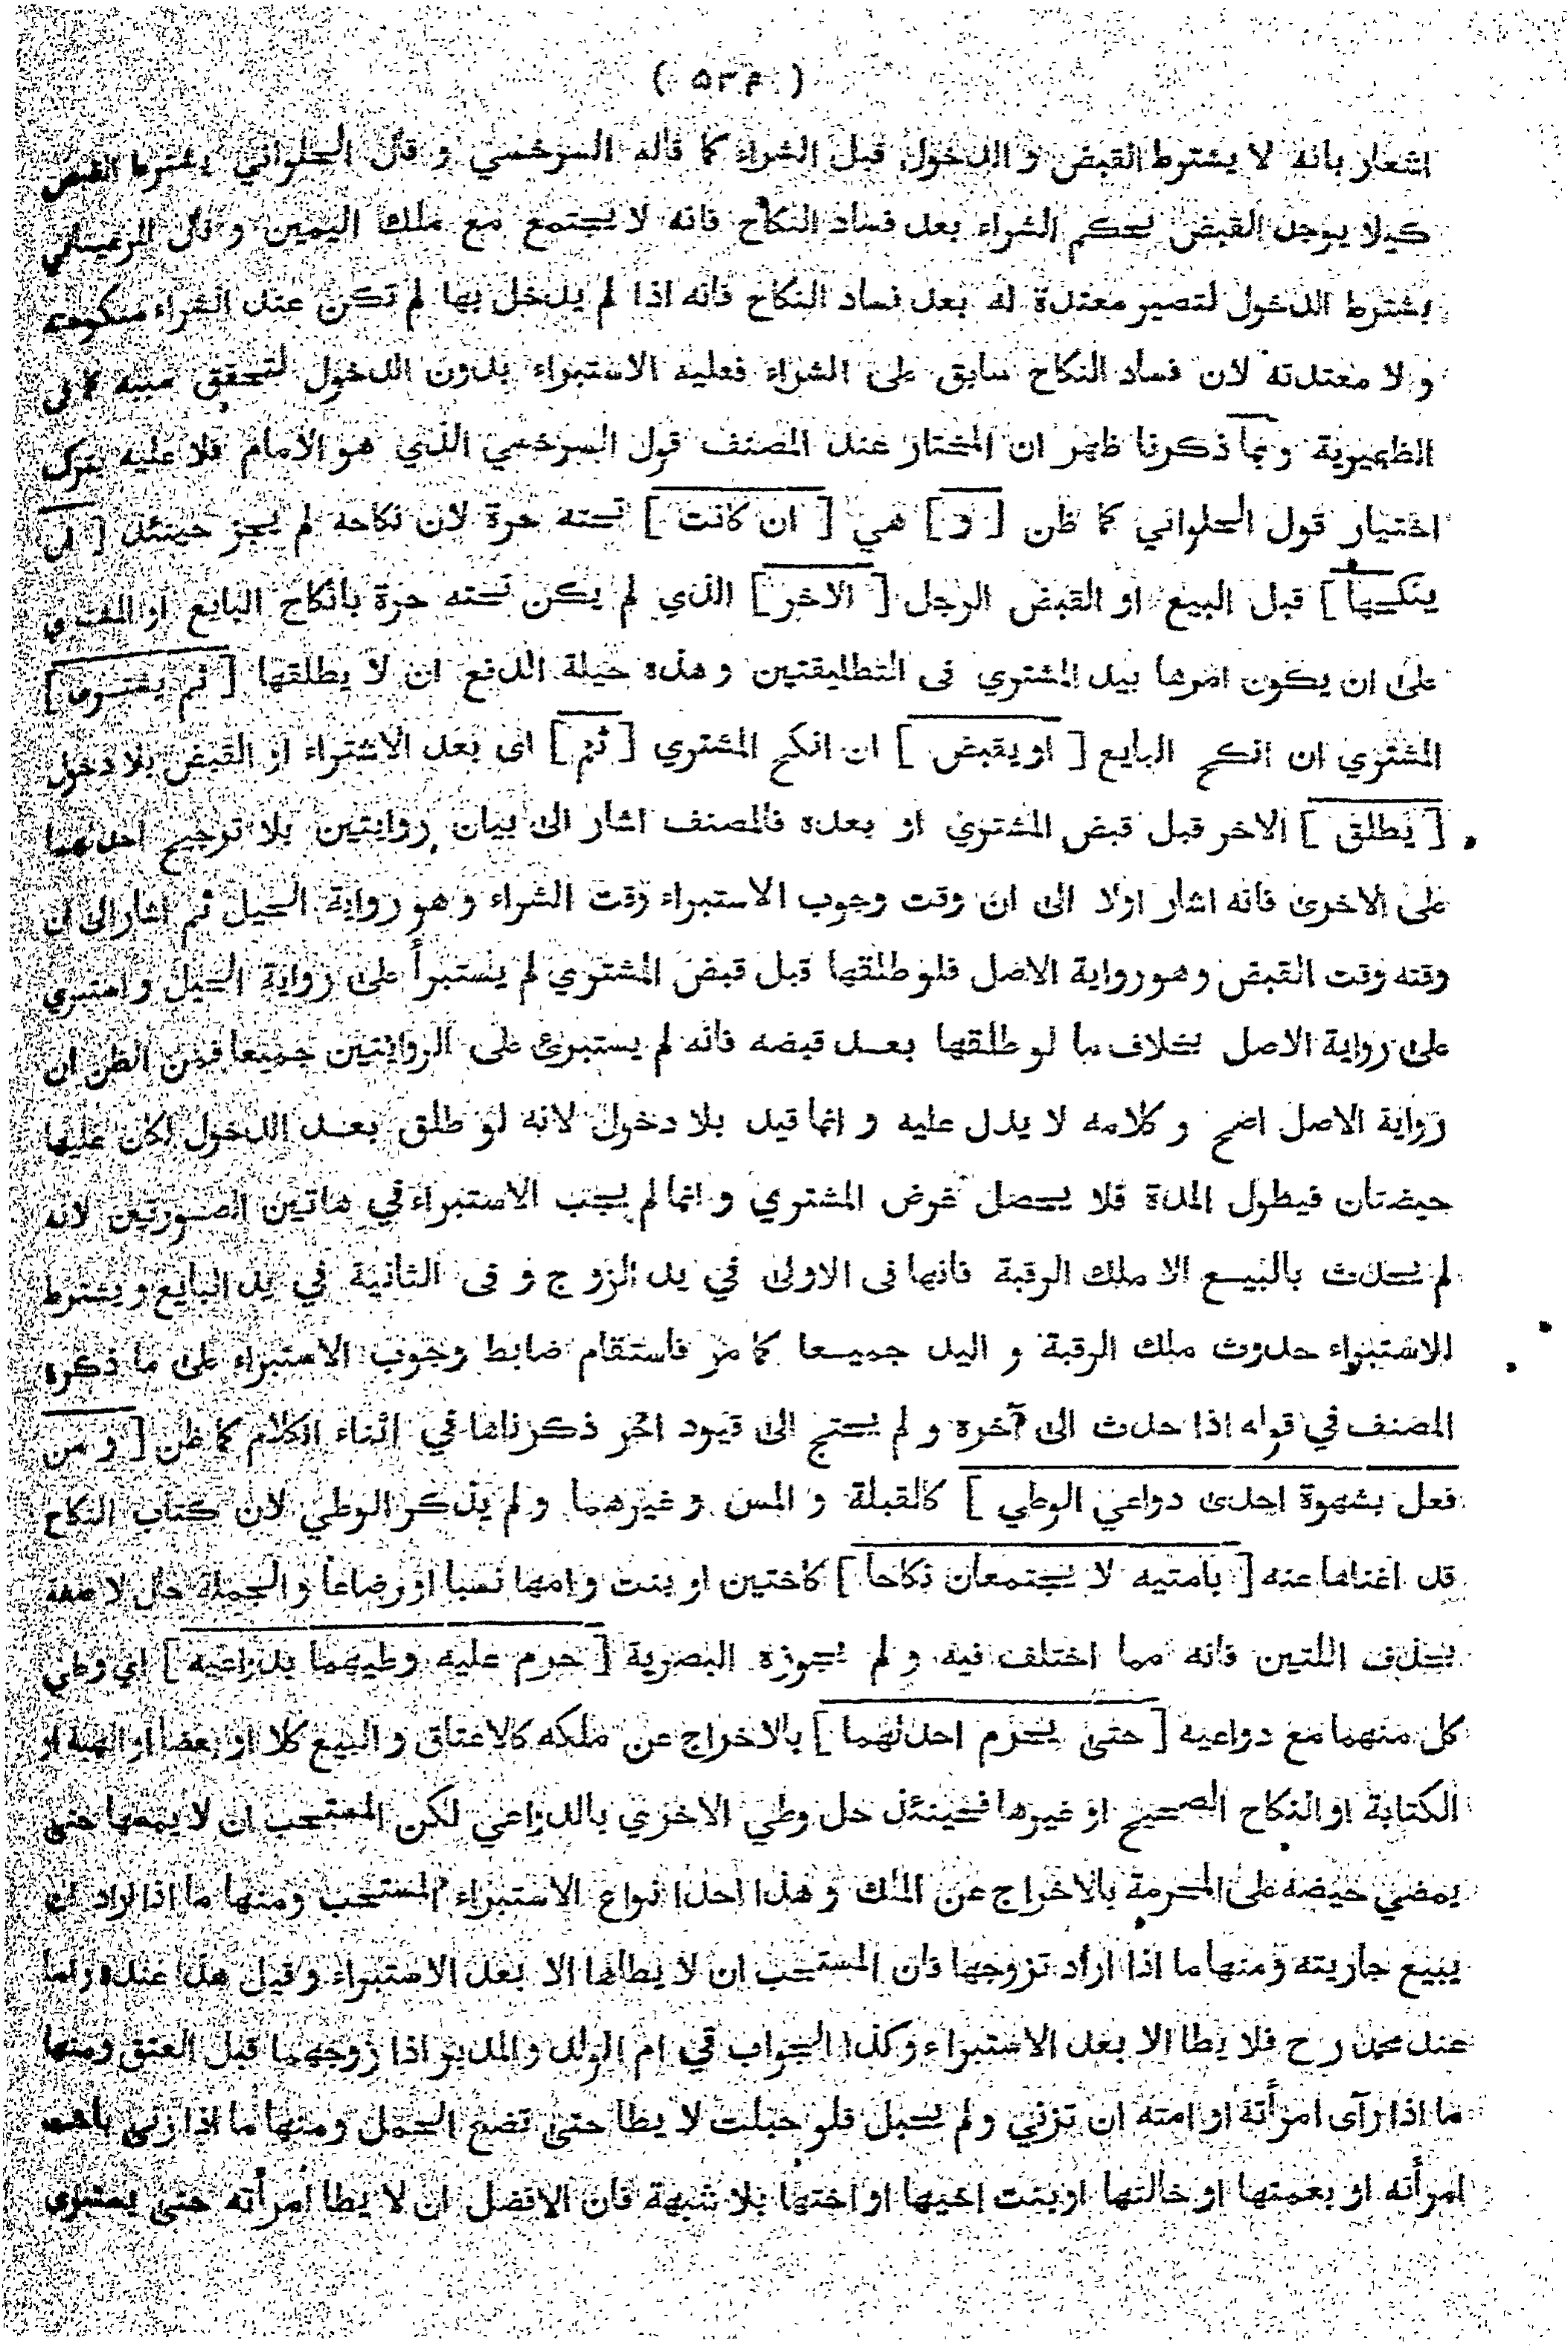 ( ٥٣٤ )
اشعار بانه لا يشترط القبض و الدخول قبل الشراء كما قاله السرخسي و قال الحلواني يشترط القبض
كيلا يوجد القبض بحكم الشراء بعد فساد النكاح فانه لا يجتمع مع ملك اليمين و قال
يشترط الدخول لتصير معتدة له بعد فساد النكاح فانه اذا لم يدخل بها لم تكن عند الشراء منكوحته
و لا معتدته لان فساد النكاح سابق على الشراء فعليه الاستبراء بدون الدخول لتحقق سببه كما في
الظهيرية و بما ذكرنا ظهر ان المختار عند المصنف قول السرخسي الذي هو الامام فلا عليه بترك
اختيار قول الحلواني كما ظن [ و ] هي [ ان كانت ] تحته حرة لان نكاحه لم يجز حينئذ [ ان
ينكحها ] قبل البيع او القبض الرجل [ الاخر ] الذي لم يكن تحته حرة بانكاح البايع او المشتري
على ان يكون امرها بيد المشتري في التطليقتين و هذه حيلة الدفع ان لا يطلقها [ ثم يشتريها ]
المشتري ان انكح البايع [ او يقبض ] ان انكح المشتري [ ثم ] اى بعد الاشتراء او القبض بلا دخول
[ يطلق ] الاخر قبل قبض المشتري او بعده فالمصنف اشار الى بيان روايتين بلا ترجيح احدلهما
على الاخرى فانه اشار اولا الى ان وقت وجوب الاستبراء وقت الشراء و هو رواية الحيل ثم اشار الى ان
وقته وقت القبض و هو رواية الاصل فلو طلقها قبل قبض المشتري لم يستبرأ على رواية الحيل و استبرئ
على رواية الاصل بخلاف ما لو طلقها بعد قبضه فانه لم يستبرئ على الروايتين جميعا فمن الظن ان
رواية الاصل اصح و كلامه لا يدل عليه و انما قيد بلا دخول لانه لو طلق بعد الدخول لكان عليها
حيضتان فيطول المدة فلا يحصل غرض المشتري و انما لم يجب الاستبراء في هاتين الصورتين لانه
لم يحدث بالبيع الا ملك الرقبة فانها في الاولى في يد الزوج و في الثانية في يد البايع و يشترط
للاستبراء حدوث ملك الرقبة و اليد جميعا كما مر فاستقام ضابط وجوب الاستبراء على ما ذكره
المصنف في قوله اذا حدث الى آخره و لم يحتج الى قيود اخر ذكرناها في اثناء الكلام كما ظن [ و من
فعل بشهوة احدى دواعي الوطي ] كالقبلة و المس و غيرهما و لم يذكر الوطي لان كتاب النكاح
قد اغناها عنه [ بامتيه لا يجتمعان نكاحا ] كاختين او بنت و امها نسبا او رضاعا و الجملة حال لا صفة
بحذف اللتين فانه مما اختلف فيه و لم يجوزه البصرية [ حرم عليه وطيهما بدواعيه ] اي وطي
كل منهما مع دواعيه [ حتى يحرم احدلهما ] بالاخراج عن ملكه كالاعتاق و البيع كلا او بعضا او الهبة او
الكتابة او النكاح الصحيح او غيرها فحينئذ حل وطي الاخرى بالدواعي لكن المستحب ان لا يمسها حتى
يمضي حيضة على المحرمة بالاخراج عن الملك و هذا احد انواع الاستبراء المستحب و منها ما اذا اراد ان
يبيع جاريته و منها ما اذا اراد تزوجها فان المستحب ان لا يطاها الا بعد الاستبراء و قيل هذا عنده و اما
عند محمد رح فلا يطا الا بعد الاستبراء و كذا الجواب في ام الولد و المدبر اذا زوجهما قبل العتق و منها
ما اذا رآى امرأته او امته ان تزني و لم تحبل فلو حبلت لا يطا حتى تضع الحمل و منها ما اذا زنى باخت
امرأته او بعمتها او خالتها او بنت اخيها او اختها بلا شبهة فان الافضل ان لا يطا امرأته حتى يستبرئ